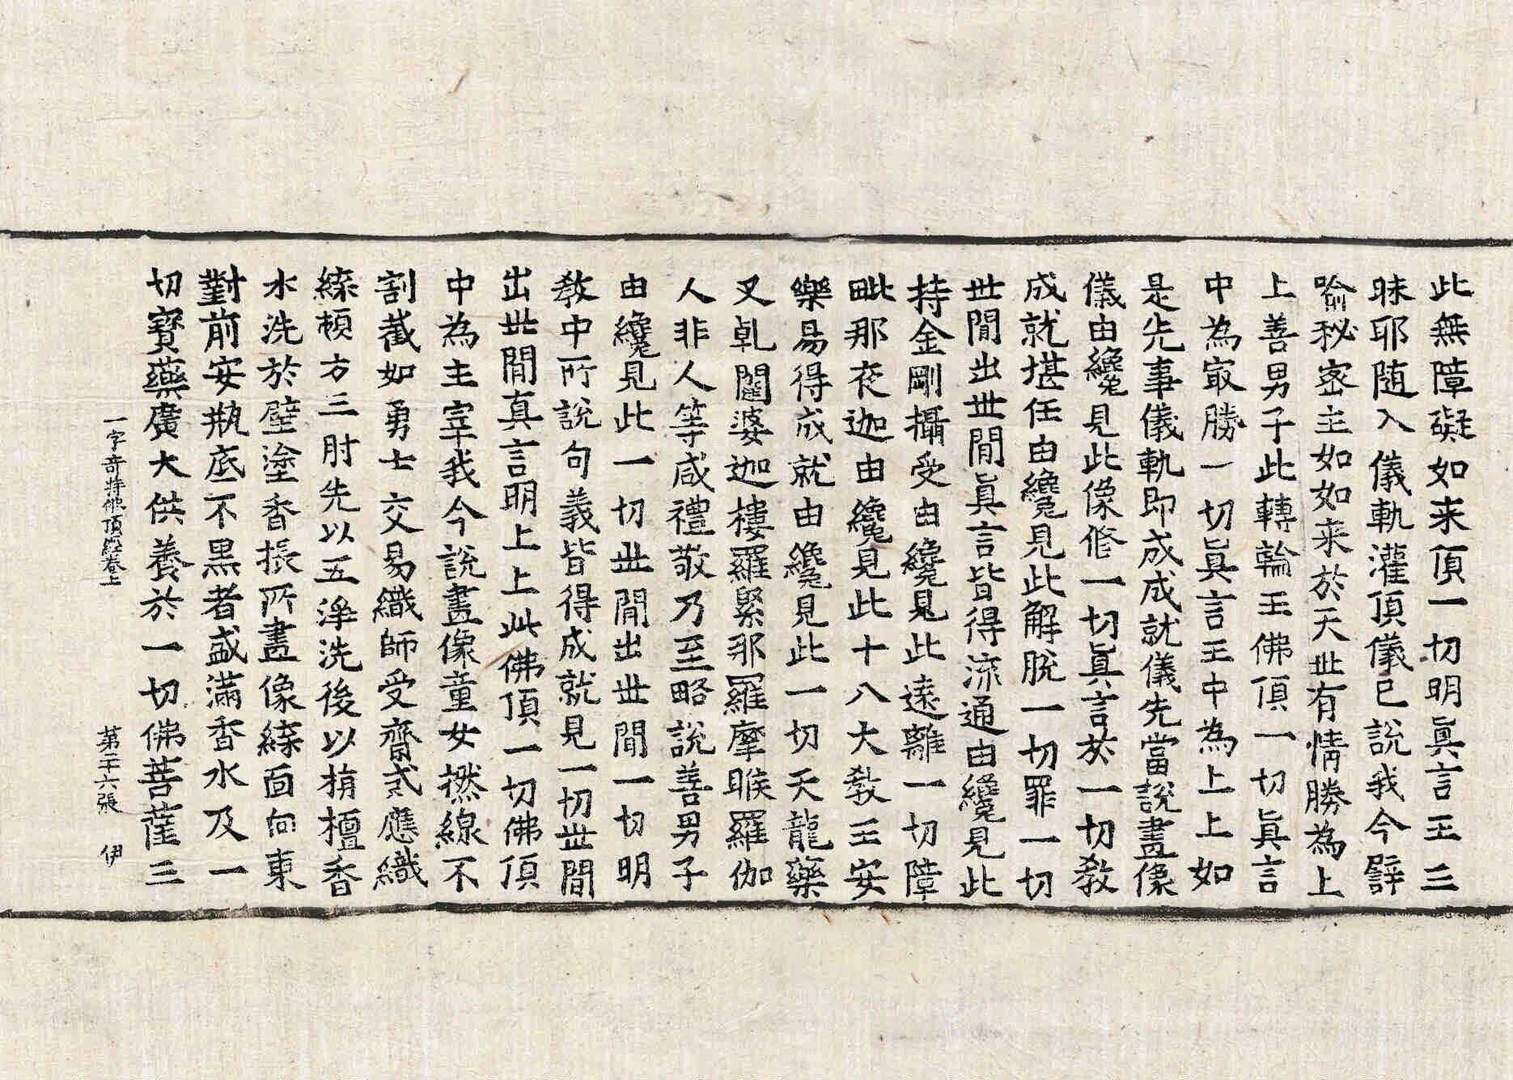 此無障礙如来頂一切明眞言王三
昧耶随入儀軌灌頂儀已說我今譬
喻秘密主如如来於天世有情勝為上
上善男子此轉輪王佛頂一切眞言
中為㝡勝一切眞言王中為上上如
是先事儀軌即成成就儀先當說畫像
儀由纔見此像修一切眞言於一切教
成就堪任由纔見此解脫一切罪一切
世閒出世閒眞言皆得流通由纔見此
持金剛攝受由纔見此遠離一切障
毗那夜迦由纔見此十八大教王安
樂易得成就由纔見此一切天龍藥
叉乹闥婆迦樓羅緊那羅摩睺羅伽
人非人等咸禮敬乃至略說善男子
由纔見此一切世閒出世閒一切明
教中所說句義皆得成就見一切世閒
出世閒真言明上上此佛頂一切佛頂
中為主宰我今說畫像童女撚線不
割截如勇士交易織師受齋式應織
緣頓方三肘先以五淨洗後以栴檀香
水洗於壁塗香掁所畫像緣面向東
對前安瓶底不黑者盛滿香水及一
切寶藥廣大供養於一切佛菩薩三
一字奇特佛頂經卷上　第二十六張　伊